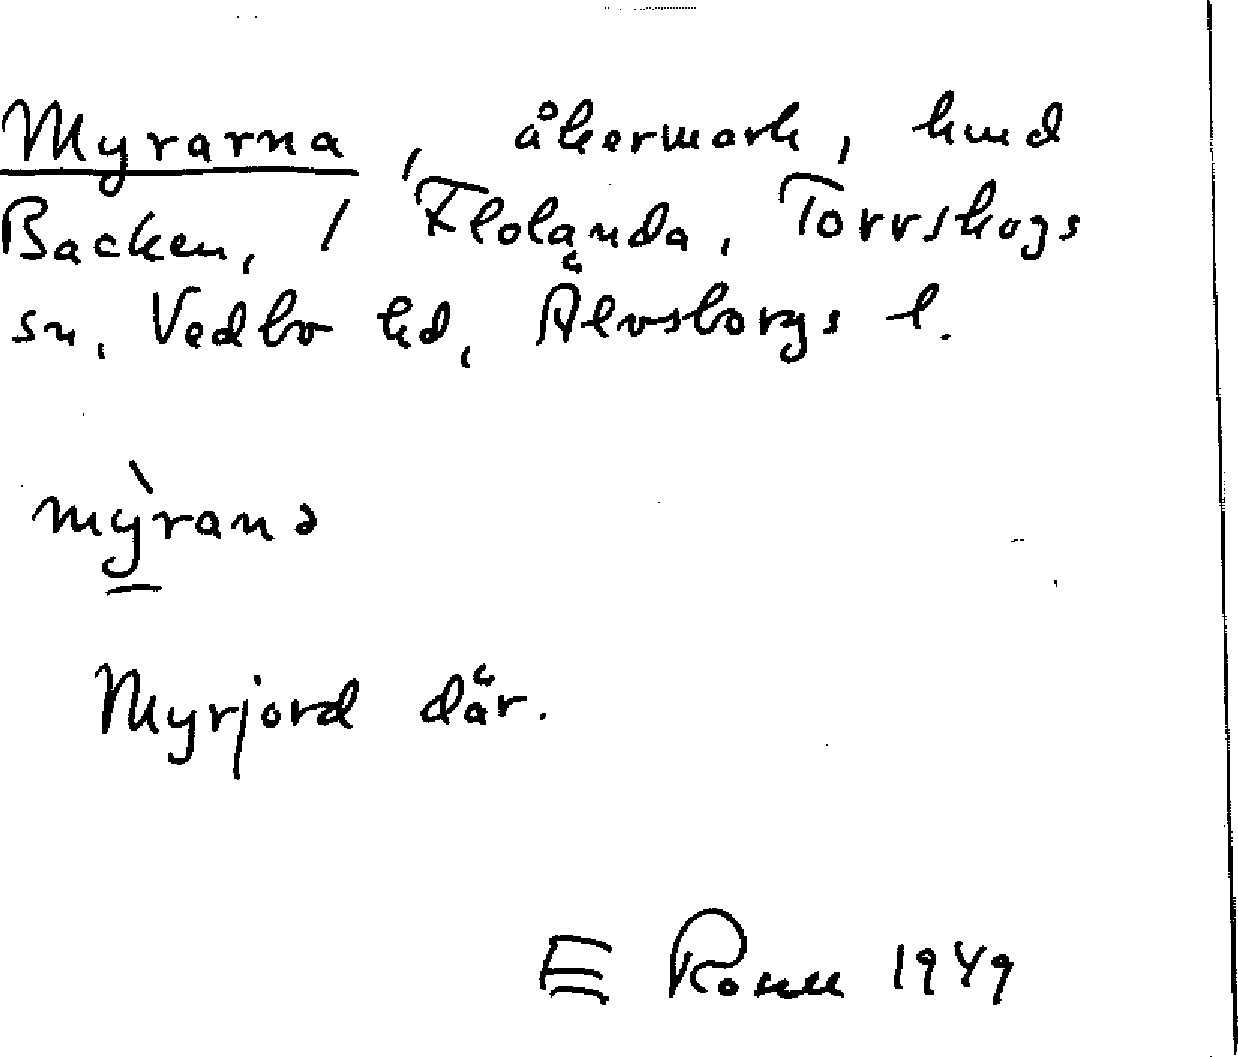 Myrarna, åkermark, hmd
Backen, 1 Flolända, Torrskogs
sn, Vedbo hd, Älvsborgs l.
mỳranə
Myrjord där.
E 1949